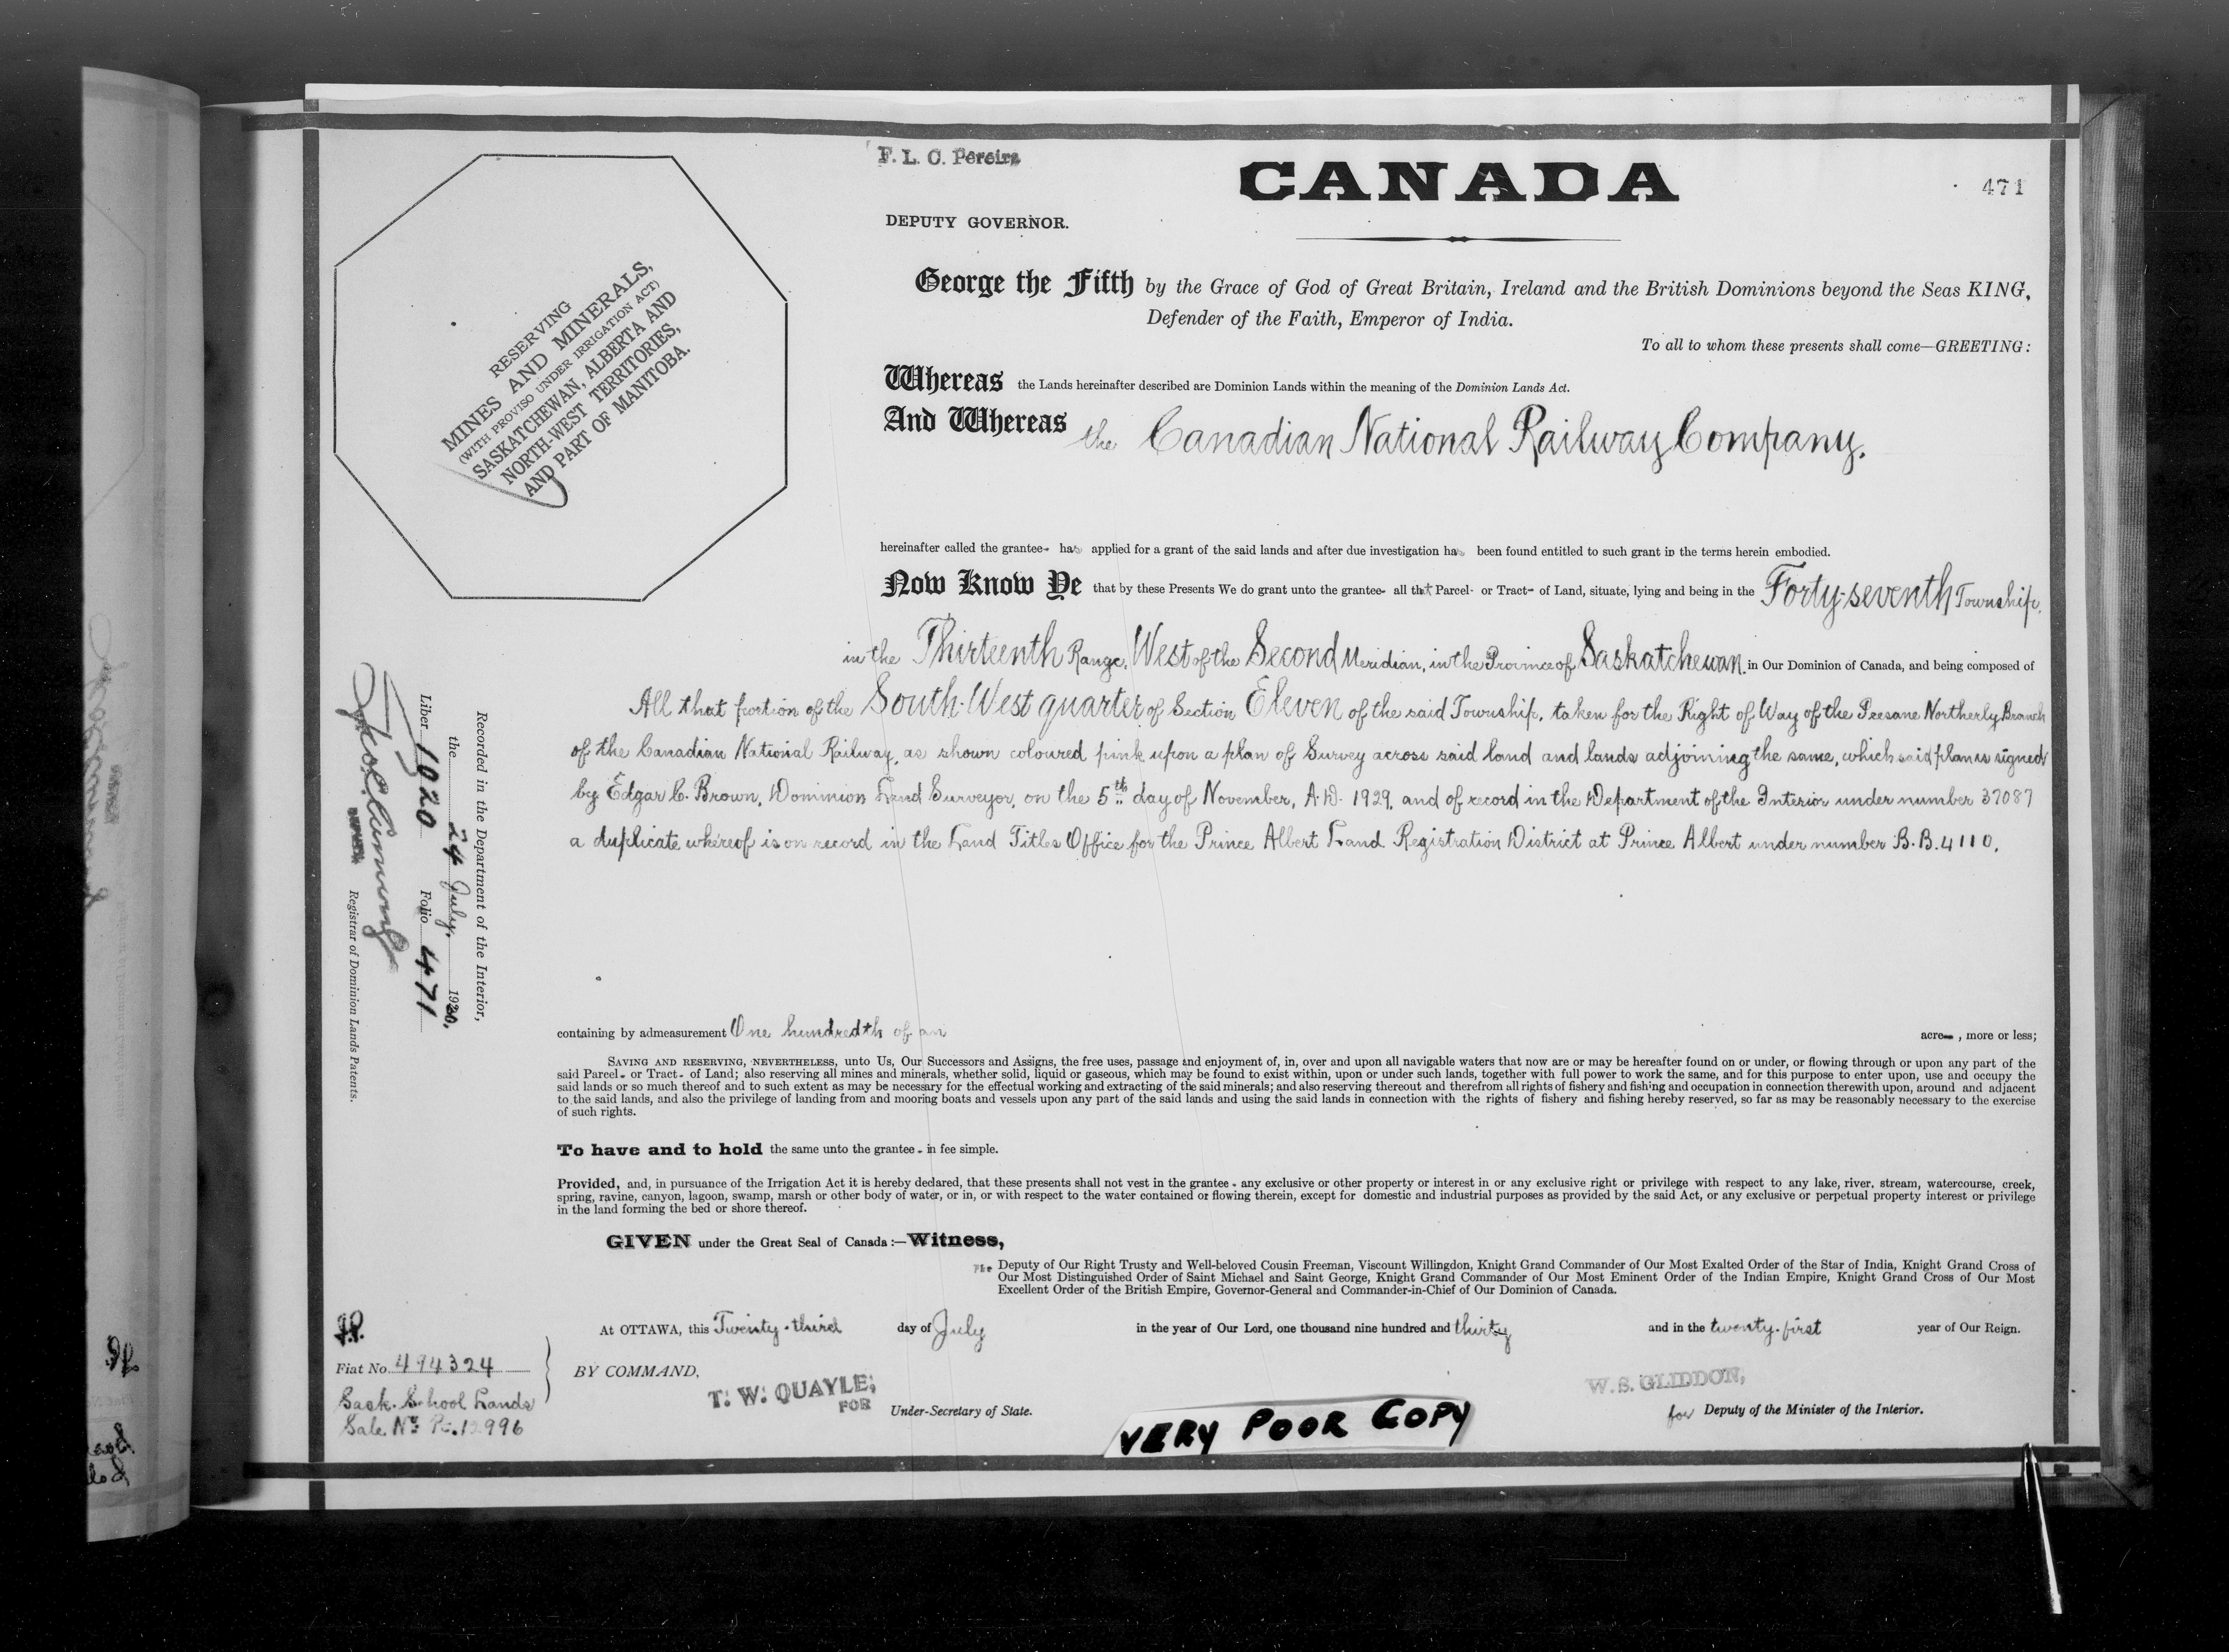 F. L. C. Pereira
CANADA
471
DEPUTY GOVERNOR.
RESERVING
MINES AND MINERALS,
(WITH PROVISO UNDER IRRIGATION ACT)
SASKATCHEWAN, ALBERTA AND
NORTH-WEST TERRITORIES,
AND PART OF MANITOBA.
George the Fifth by the Grace of God of Great Britain, Ireland and the British Dominions beyond the Seas KING,
Defender of the Faith, Emperor of India.
To all to whom these presents shall come—GREETING:
Whereas the Lands hereinafter described are Dominion Lands within the meaning of the Dominion Lands Act.
And Whereas the Canadian National Railway Company.
hereinafter called the grantee- has applied for a grant of the said lands and after due investigation has been found entitled to such grant in the terms herein embodied.
Now Know Ye that by these Presents We do grant unto the grantee- all that Parcel- or Tract- of Land, situate, lying and being in the Forty-seventh Township,
in the Thirteenth Range, West of the Second Meridian, in the Province of Saskatchewan. in Our Dominion of Canada, and being composed of
All that portion of the South-West quarter of Section Eleven of the said Township, taken for the Right of Way of the Peesane Northerly Branch
of the Canadian National Railway, as shown coloured pink upon a plan of Survey across said land and lands adjoining the same, which said plan is signed
by Edgar C. Brown, Dominion Land Surveyor, on the 5th day of November, A.D. 1929, and of record in the Department of the Interior under number 37087
a duplicate whereof is on record in the Land Titles Office for the Prince Albert Land Registration District at Prince Albert under number B.B. 4110.
Recorded in the Department of the Interior,
the 24 July, 1930.
Liber 1020 Folio 471
Registrar of Dominion Lands Patents.
containing by admeasurement One hundredth of an acre , more or less;
SAVING AND RESERVING, NEVERTHELESS, unto Us, Our Successors and Assigns, the free uses, passage and enjoyment of, in, over and upon all navigable waters that now are or may be hereafter found on or under, or flowing through or upon any part of the
said Parcel- or Tract- of Land; also reserving all mines and minerals, whether solid, liquid or gaseous, which may be found to exist within, upon or under such lands, together with full power to work the same, and for this purpose to enter upon, use and occupy the
said lands or so much thereof and to such extent as may be necessary for the effectual working and extracting of the said minerals; and also reserving thereout and therefrom all rights of fishery and fishing and occupation in connection therewith upon, around and adjacent
to the said lands, and also the privilege of landing from and mooring boats and vessels upon any part of the said lands and using the said lands in connection with the rights of fishery and fishing hereby reserved, so far as may be reasonably necessary to the exercise
of such rights.
To have and to hold the same unto the grantee - in fee simple.
Provided, and, in pursuance of the Irrigation Act it is hereby declared, that these presents shall not vest in the grantee - any exclusive or other property or interest in or any exclusive right or privilege with respect to any lake, river, stream, watercourse, creek,
spring, ravine, canyon, lagoon, swamp, marsh or other body of water, or in, or with respect to the water contained or flowing therein, except for domestic and industrial purposes as provided by the said Act, or any exclusive or perpetual property interest or privilege
in the land forming the bed or shore thereof.
GIVEN under the Great Seal of Canada:—Witness,
The Deputy of Our Right Trusty and Well-beloved Cousin Freeman, Viscount Willingdon, Knight Grand Commander of Our Most Exalted Order of the Star of India, Knight Grand Cross of
Our Most Distinguished Order of Saint Michael and Saint George, Knight Grand Commander of Our Most Eminent Order of the Indian Empire, Knight Grand Cross of Our Most
Excellent Order of the British Empire, Governor-General and Commander-in-Chief of Our Dominion of Canada.
At OTTAWA, this Twenty-third day of July in the year of Our Lord, one thousand nine hundred and thirty and in the twenty-first year of Our Reign.
Fiat No. 494324
Sask. School Lands
Sale No.
BY COMMAND,
T. W. QUAYLE,
FOR
Under-Secretary of State.
W. S. GLIDDON,
for Deputy of the Minister of the Interior.
VERY POOR COPY